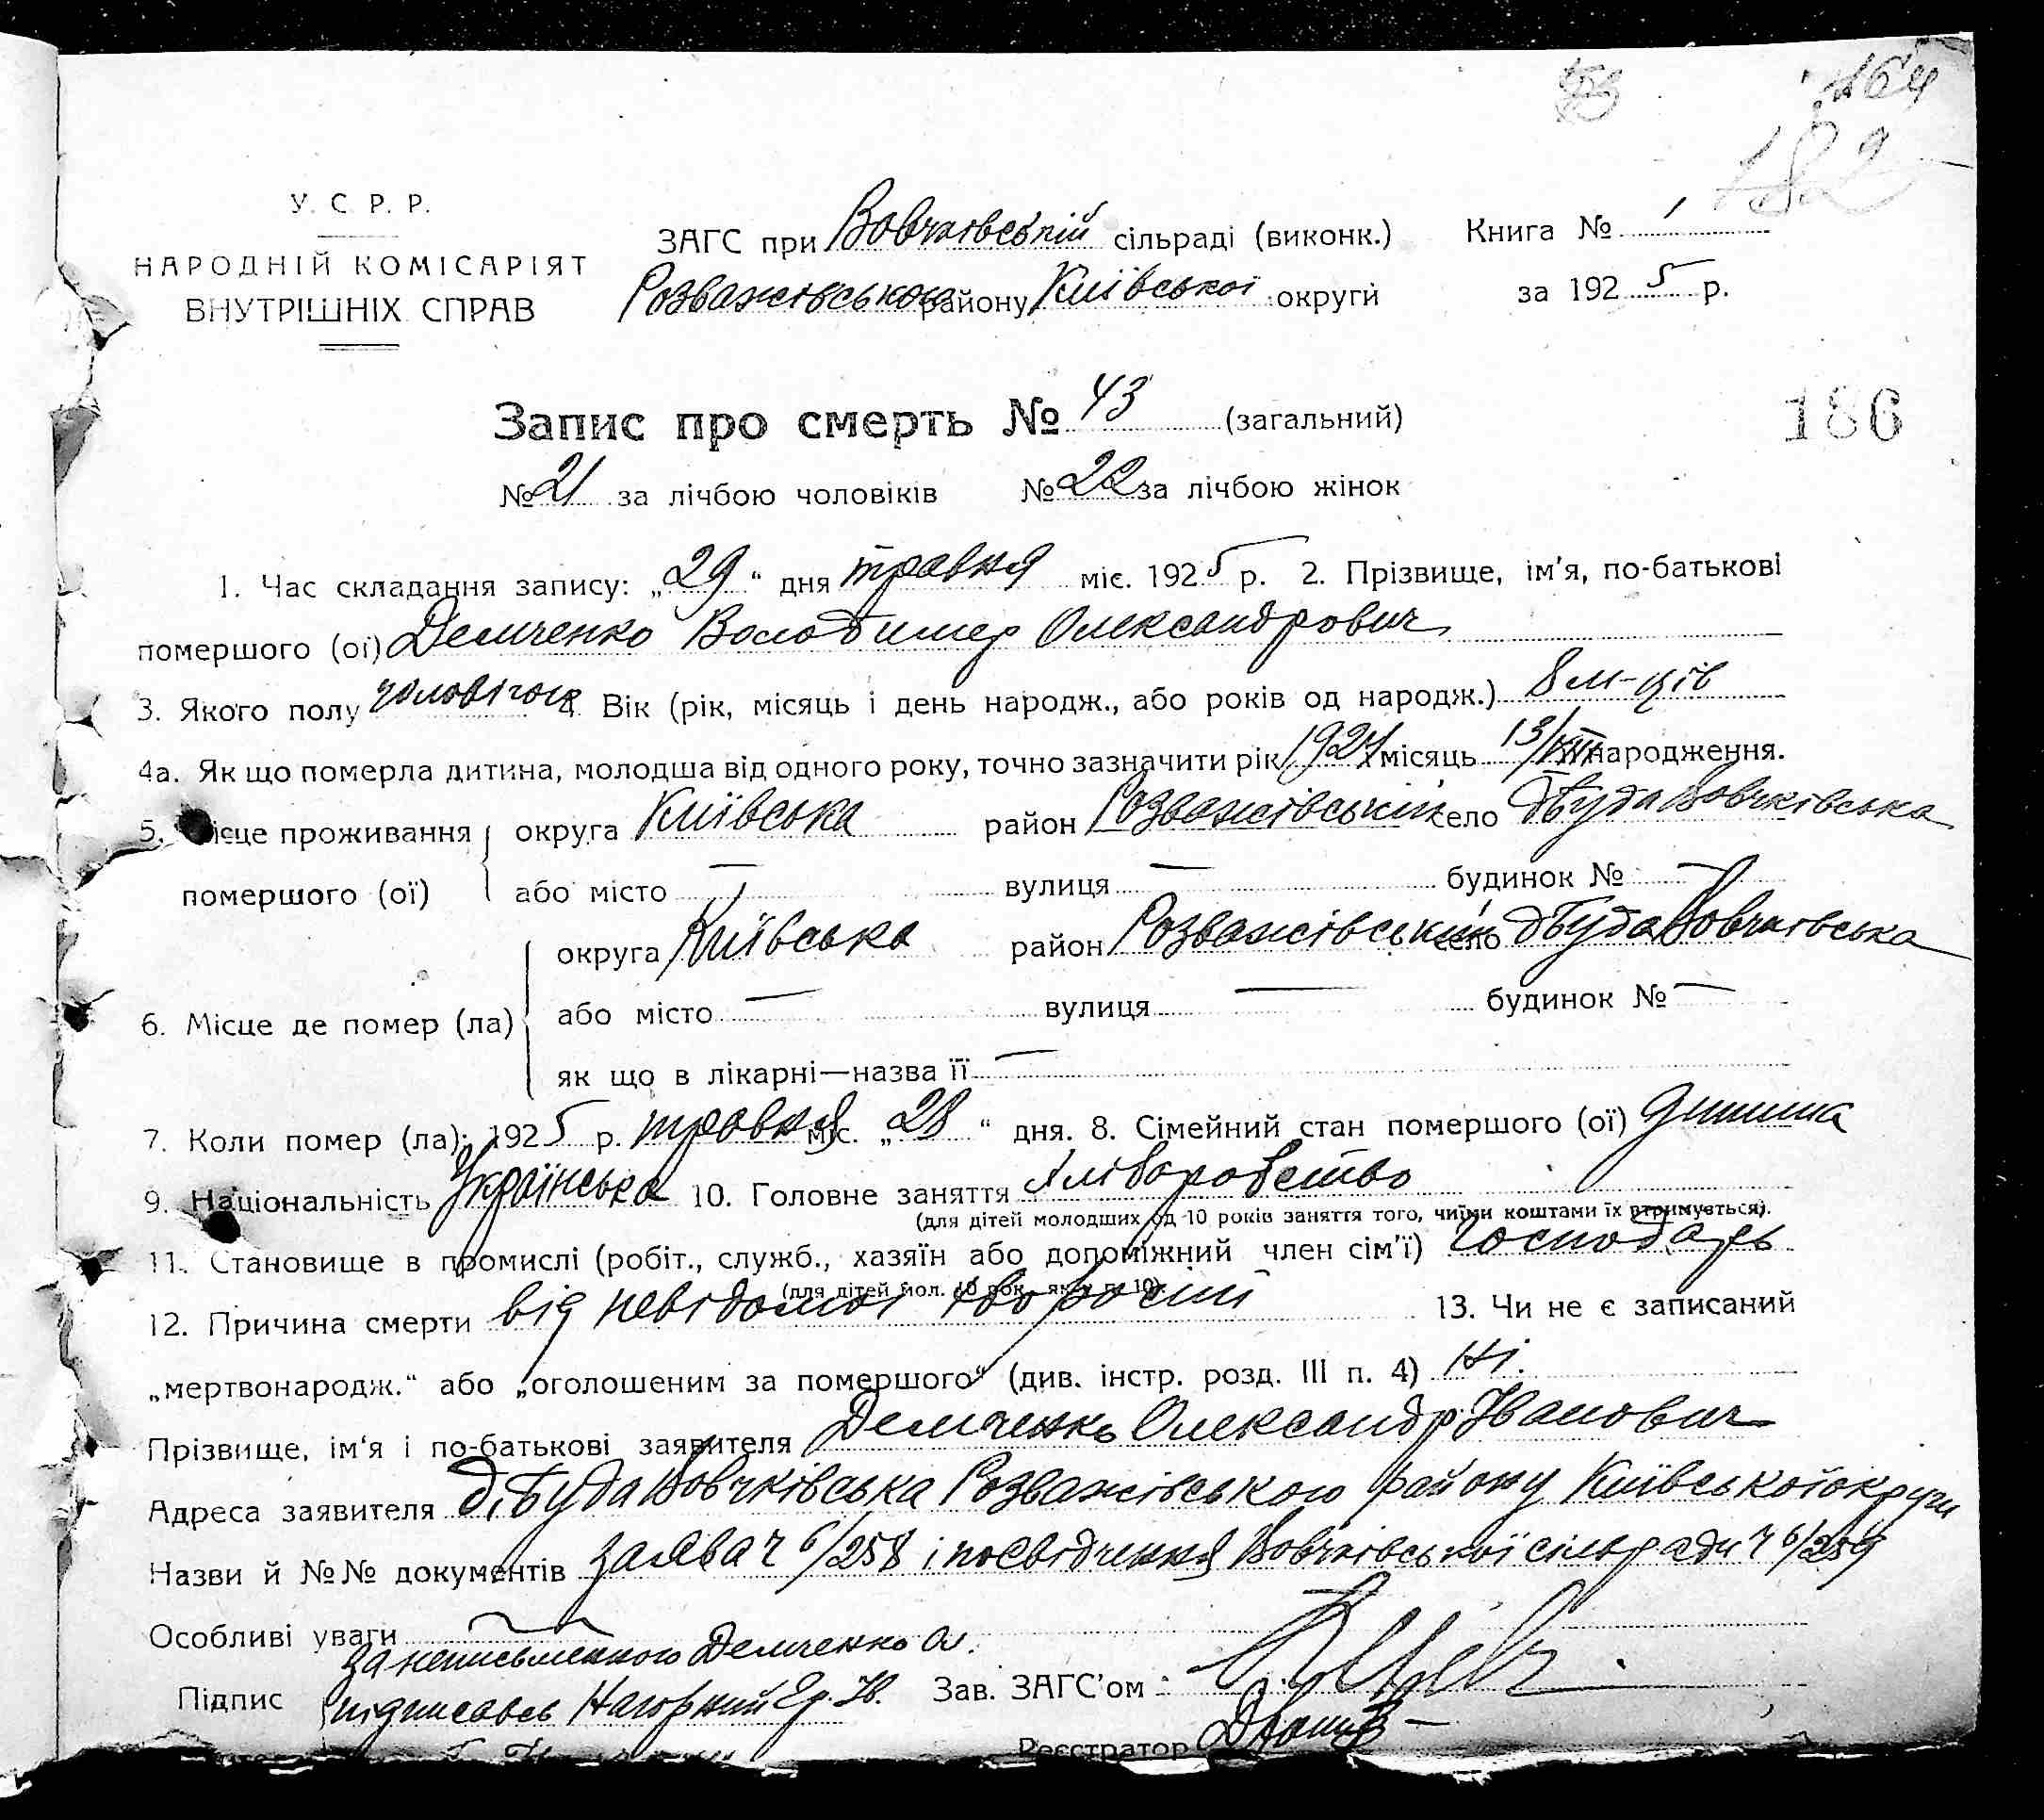 164
182
У. С. Р. Р.
НАРОДНІЙ КОМІСАРІЯТ
ВНУТРІШНІХ СПРАВ
ЗАГС при Вовчківській сільраді (виконк.) Книга № 1
Розважівського району Київської округи за 1925 р.
Запис про смерть № 43 (загальний)
186
№ 21 за лічбою чоловіків № 22 за лічбою жінок
1. Час складання запису: „29“ дня травня міс. 1925 р. 2. Прізвище, ім'я, по-батькові
помершого (ої) Демченко Володимер Олександрович
3. Якого полу чоловічого 4. Вік (рік, місяць і день народж., або років од народж.) 8 м-ців
4а. Як що померла дитина, молодша від одного року, точно зазначити рік 1924 місяць 13/ народження.
5. Місце проживання округа Київська район Розважівський село д. Буда Вовчківська
помершого (ої) або місто — вулиця — будинок № —
округа Київська район Розважівський село д. Буда Вовчківська
6. Місце де помер (ла) або місто — вулиця — будинок № —
як що в лікарні—назва її —
7. Коли помер (ла): 1925 р. травня міс. „28“ дня. 8. Сімейний стан помершого (ої) дитина
9. Національність Українська 10. Головне заняття хліборобство
(для дітей молодших од 10 років заняття того, чиїми коштами їх втримується).
11. Становище в промислі (робіт., служб., хазяїн або допоміжний член сім'ї) господарь
(для дітей мол. 10 рок. як у п. 10)
12. Причина смерти від невідомої хворости 13. Чи не є записаний
„мертвонародж.“ або „оголошеним за помершого“ (див. інстр. розд. III п. 4) Ні.
Прізвище, ім'я і по-батькові заявителя Демченко Олександр Іванович
Адреса заявителя д. Буда Вовчківська Розважівського району Київської округи
Назви й №№ документів заява ч 6/258 і посвідчення Вовчківської сільради ч 6/259
Особливі уваги
за неписьменного Демченко О.
Підпис підписавсь Нагорний Гр. Ів. Зав. ЗАГС'ом
Реєстратор